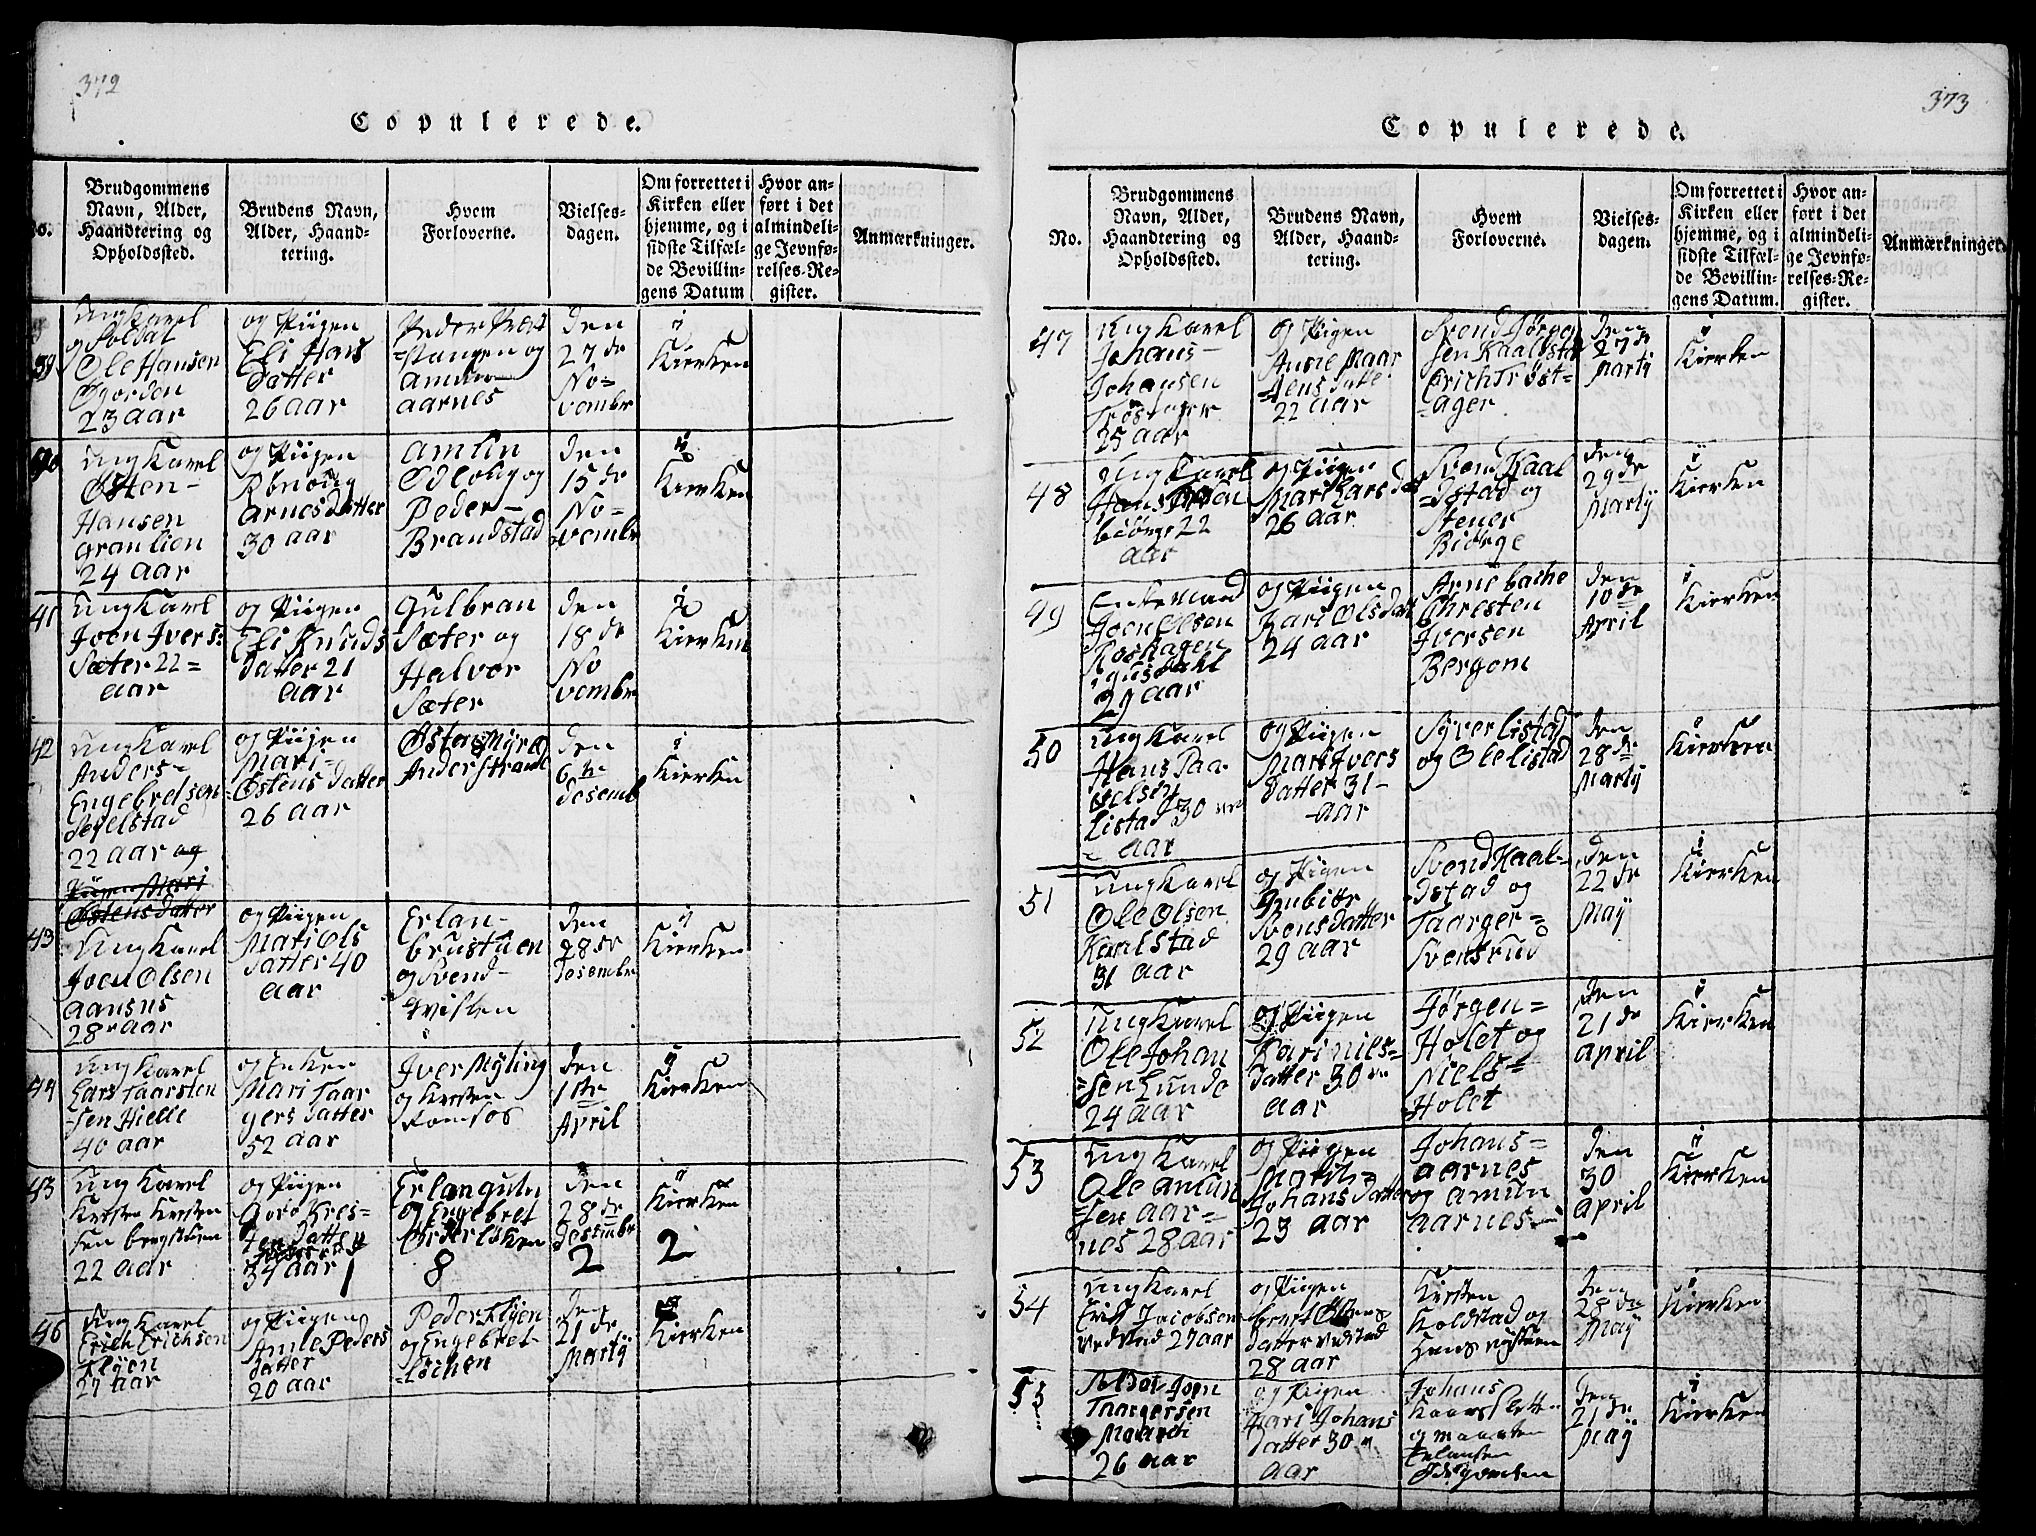 372
Copulerede.
No.
Brudgommens
Navn, Alder,
Haandtering og
Opholdssted.
Brudens Navn,
Alder, Haand-
tering.
Hvem
Forloverne.
Vielses-
dagen.
Om forrettet i
Kirken eller
hjemme, og i
sidste Tilfæl-
de Bevillin-
gens Datum
Hvor an-
ført i det
almindeli-
ge Jevnfø-
relses-Re-
gister.
Anmærkninger.
39
Ungkarel
og Soldat
Ole Hansen
23 aar
og Piigen
Eli Hans
datter
26 aar
Peder
=stangen og
Amun
aarnes
den
27 de
No=
vembr
i
Kierken
40
Ungkarel
Østen-
Hansen
Granlien
24 aar
og Piigen
Arnesdatter
30 aar
Amun
Odloug og
Peder-
Brandstad
den
15 de
No=
vembr
i
Kierken
41
Ungkarel
Joen Ivers:
Sæter 22=
aar
og Piigen
Eli Knuds
datter 21
aar
Gulbran
Sæter og
Halvor
Sæter
den
18 de
No
vembr
i
Kierken
42
Ungkarel
Anders=
Engebretsen
Segelstad
22 aar og
Piigen Mari
Østensdatter
og Piigen
Mari-
Østens datter
26 aar
Østen Myre
Anderstrand
den
6te
desemb
i
Kierken
43
Ungkarel
Joen Olsen
Aansns
28 aar
og Piigen
Mari Ols
datter 40
aar
Erlan-
brustuen
og Svend-
Wisten
den
28 de
desembr
i
Kierken
44
Ungkarel
Lars Taarsten
sen Hielle
40 aar
og Enken
Mari Taar
gers datter
52 aar
Iver Myling
og Kresten
Romsos
den
1te
April
i
Kierken
45
Ungkarel
Kresten Kresten
sen bergstuen
22 aar
og Piigen
Goro Kres=
ten datter
34 aar
Erlan
og Engebret
8
den
28 de
desembr
2
i
Kierken
2
46
Ungkarel
Erich Erichsen
Klyen
27 aar
og Piigen
Anne Peders
datter
20 aar
Peder Klyen
og Engebret-
=löchen
den
21 de
Martij
i
Kierken
373
Copulerede.
No.
Brudgommens
Navn, Alder,
Haandtering og
Opholdssted.
Brudens Navn,
Alder, Haand-
tering.
Hvem
Forloverne.
Vielses-
dagen.
Om forrettet i
Kirken eller
hjemme, og i
sidste Tilfæl-
de Bevillin-
gens Datum.
Hvor an-
ført i det
almindeli-
ge Jevnfø-
relses-Re-
gister.
Anmærkninger.
47
Ungkarel
Johans-
Johansen
Tröstager
25 aar
og Piigen
Anne Maar
tens datte
22 aar
Svend Jörgen
sen Kaalstad
Erich Tröst=
=ager
den
27 de
Martij
i
Kierken
48
Ungkarel
Hans
biörge 22
aar
og Piigen
Mari Lars dat
26 aar
Svend Kaal
=dstad og
Stener
Biörge
den
29 de
Martij
i
Kierken
49
Enkemand
Joen Olsen
Roshagen
i gusdahl
29 aar
og Piigen
Kari Olsdatt
24 aar
Arne bache
Chresten
Iversen
Bergom
den
10 de
April
i
Kierken
50
Ungkarel
Hans Paa
velsen
Listad 30
= aar
og Piigen
Mari Ivers
datter 31-
-aar
Syver Listad
og Ole Listad
den
28 de
Martij
i
Kierken
51
Ungkarel
Ole Olsen
Kaalstad
31 aar
og Piigen
Gubiör
Svensdatter
29 aar
Svend Kaal-
dstad og
Taarger=
Svensrud
den
22 de
May
i
Kierken
52
Ungkarel
Ole Johan
=sen Lunde
24 aar
og Piigen
Kari Niels=
datter 30
aar
Jörgen=
Holet og
Niels=
Holet
den
21 de
april
i
Kierken
53
Ungkarel
Ole Amun
=sen Aar=
nes 28 aar
og Piigen
Marit
Johans datter
23 aar
Johans=
aarnes
og Amun
aarnes
den
30
april
i
Kierken
54
Ungkarel
Erik Jacobsen
Vedstad 27 aar
og Piigen
datter Vedstad
28 aar
Kresten
Koldstad og
Hans
den
28 de
May
i
Kierken
55
Soldat Joen
Taargersen
26 aar
og Piigen
Kari Johans
datter 30
aar
Johans
og
Erlansen
den
21 de
May
i
Kierken